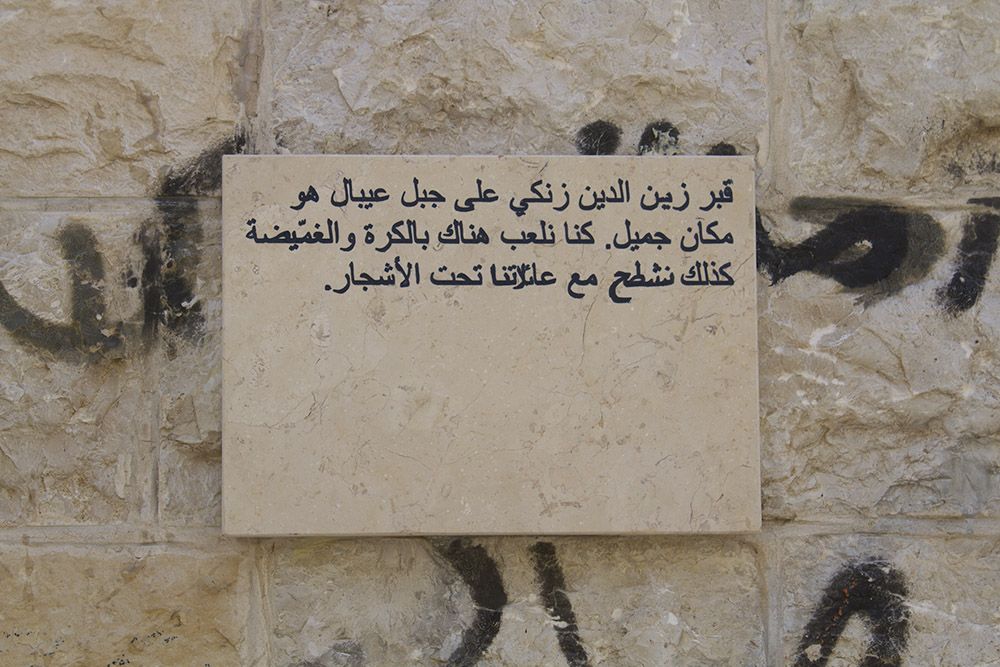 قبر زين الدين زنكي على جبل عيبال هو
مكان جميل. كنا نلعب هناك بالكرة والغمّيضة
كذلك نشطح مع عائلاتنا تحت الأشجار.